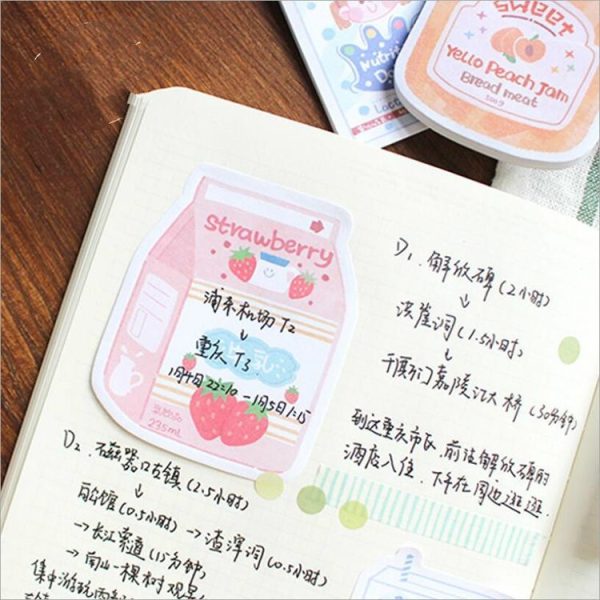 sweet
Yello Peach Jam
Bread meat
100g
Nutri
strawberry
浦东机场 T2
↓
重庆 T3.
1月4日 22:10 — 1月5日 1:15
235mL
D1. 解放碑 (2小时)
↓
洪崖洞 (1.5小时)
↓
千厮门嘉陵江大桥 (30分钟)
到达重庆市区, 前往解放碑的
酒店入住. 下午在周边逛逛.
D2. 磁器口古镇 (2.5小时)
↓
白公馆 (0.5小时) → 渣滓洞 (0.5小时)
→ 长江索道 (15分钟)
→ 南山一棵树观景
集中游玩两